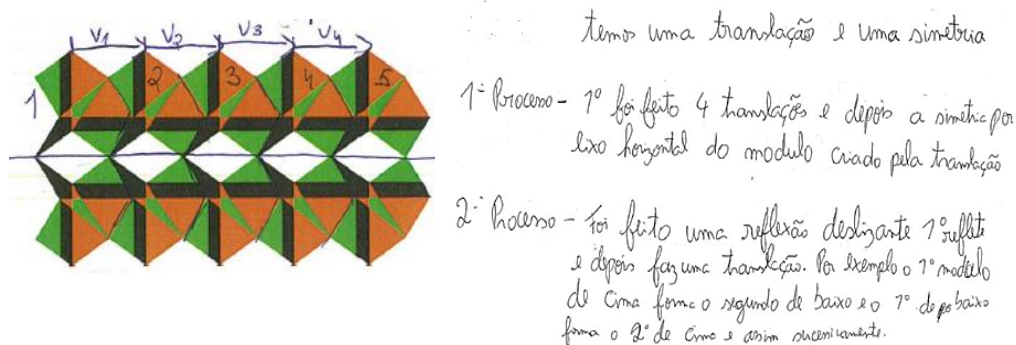 V1 V2 V3 V4
1 2 3 4 5
temos uma translação e uma simetria
1º Processo - 1º foi feito 4 translações e depois a simetria por
eixo horizontal do modulo criado pela translação
2º Processo - Foi feito uma reflexão deslizante 1º reflete
e depois faz uma translação. Por exemplo o 1º modulo
de cima forma o segundo de baixo e o 1º de baixo
forma o 2º de cima e assim sucessivamente.